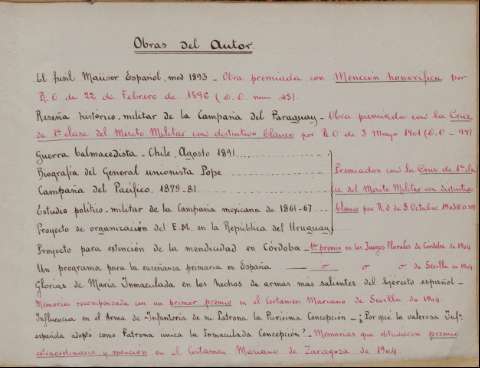 Obras del Autor
El fusil Mauser Español, mod 1893 - Obra premiada con Mención honorífica por
R.O. de 22 de Febrero de 1896 (D.O. num 43).
Reseña histórico-militar de la Campaña del Paraguay - Obra premiada con la Cruz
de 1ª clase del Mérito Militar con distintivo blanco por R.O de 3 Mayo 1901 (D.O - 97)
Guerra balmacedista - Chile, Agosto 1891
Biografía del General unionista Pope
Campaña del Pacífico, 1879-81
Estudio político-militar de la Campaña mexicana de 1861-67
Proyecto de organización del E.M. en la República del Uruguay
Premiados con la Cruz de 1ª cla
se del Mérito Militar con distintivo
blanco por R.O de 8 Octubre
Proyecto para extinción de la mendicidad en Córdoba - 1er premio en los Juegos Florales de Córdoba de 1904
Un programa para la enseñanza primaria en España - " " " de Sevilla en 1904
Glorias de María Inmaculada en los hechos de armas mas salientes del Ejército español -
Memorias recompensada con un primer premio en el Certamen Mariano de Sevilla de 1904.
Influencia en el Arma de Infantería de su Patrona la Purísima Concepción - ¿Por qué la valerosa Infª
española adoptó como Patrona única la Inmaculada Concepción? - Memorias que obtuvieron premio
extraordinario y mención en el Certamen Mariano de Zaragoza de 1904